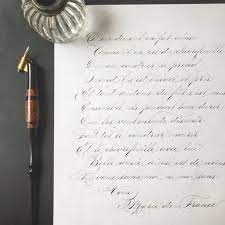 Comme il en est du chevrefeuille
au coudrier se prend
Quand il s'est enlacé et pris
Et tout autour du fût s'est mis
Ensemble ils peuvent bien durer
Qui les veut ensuite désunir
Fait tôt le coudrier mourir
Et le chevrefeuille avec lui
Belle amie ainsi est de nous
Ni vous sans moi, ni moi sans
Vous
Marie de France